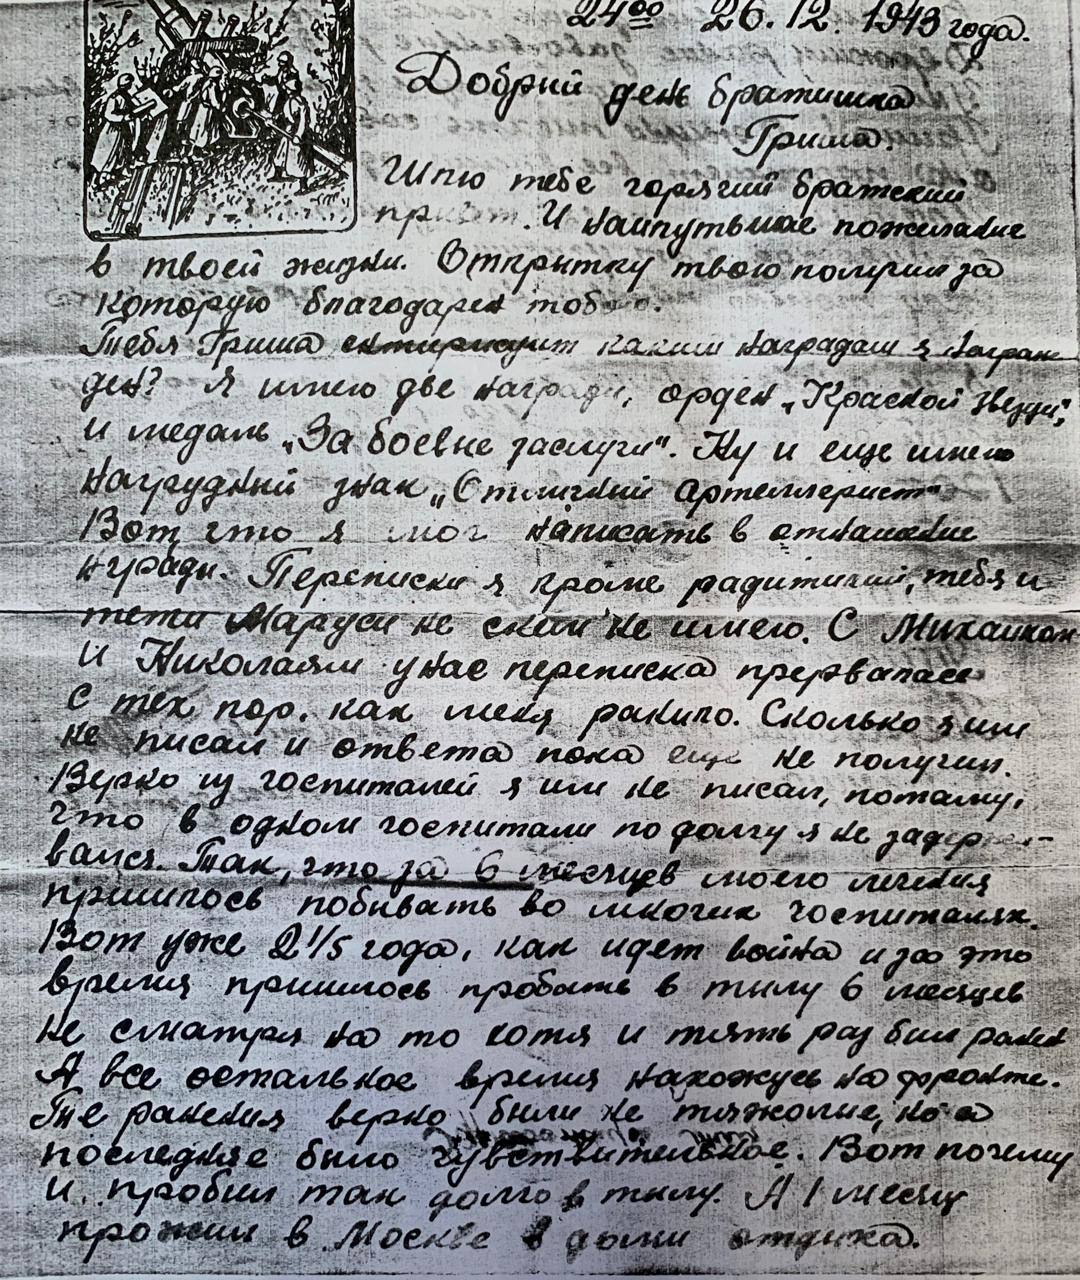 24⁰⁰ 26.12.1943 года.
Добрий день братишка
Гриша.
Шлю тебе горячий братский
привет. И наилутьшие пожелание
в твоей жизни. Открытку твою получил за
которую благодарен тобою.
Тебя Гриша интирисуит каким наградам я награж
ден? Я имею две награди, орден „Красной звезди",
и медаль „За боевие заслуги". Ну и еще имею
нагрудний знак „Отличний артеллерист"
Вот что я мог написать в отнашение
нград. Переписки я кроме радитилий, тебя и
тети Маруси не скем не имею. С Михаилом
и Николаям у нас переписка прервалась
с тех пор. как меня ранило. Сколько я им
не писал и ответа пока еще не получил.
Верно из госпиталей я им не писал, потаму,
что в одном госпитали по долгу я не задержи-
вался. Так, что за 6 месяцев моего личения
пришлось побивать во многих госпиталях.
Вот уже 2 1/5 года, как идет война и за это
время пришлось пробать в тылу 6 месяцев
не сматря на то хотя и пять раз бил ранен
А все остальное время нахожусь на фронте.
Те ранения верно били не тяжолие, но а
последнее было чувствительное. Вот почему
и пробил так долго в тылу. А 1 месяц
прожил в Москве в доми отдиха.